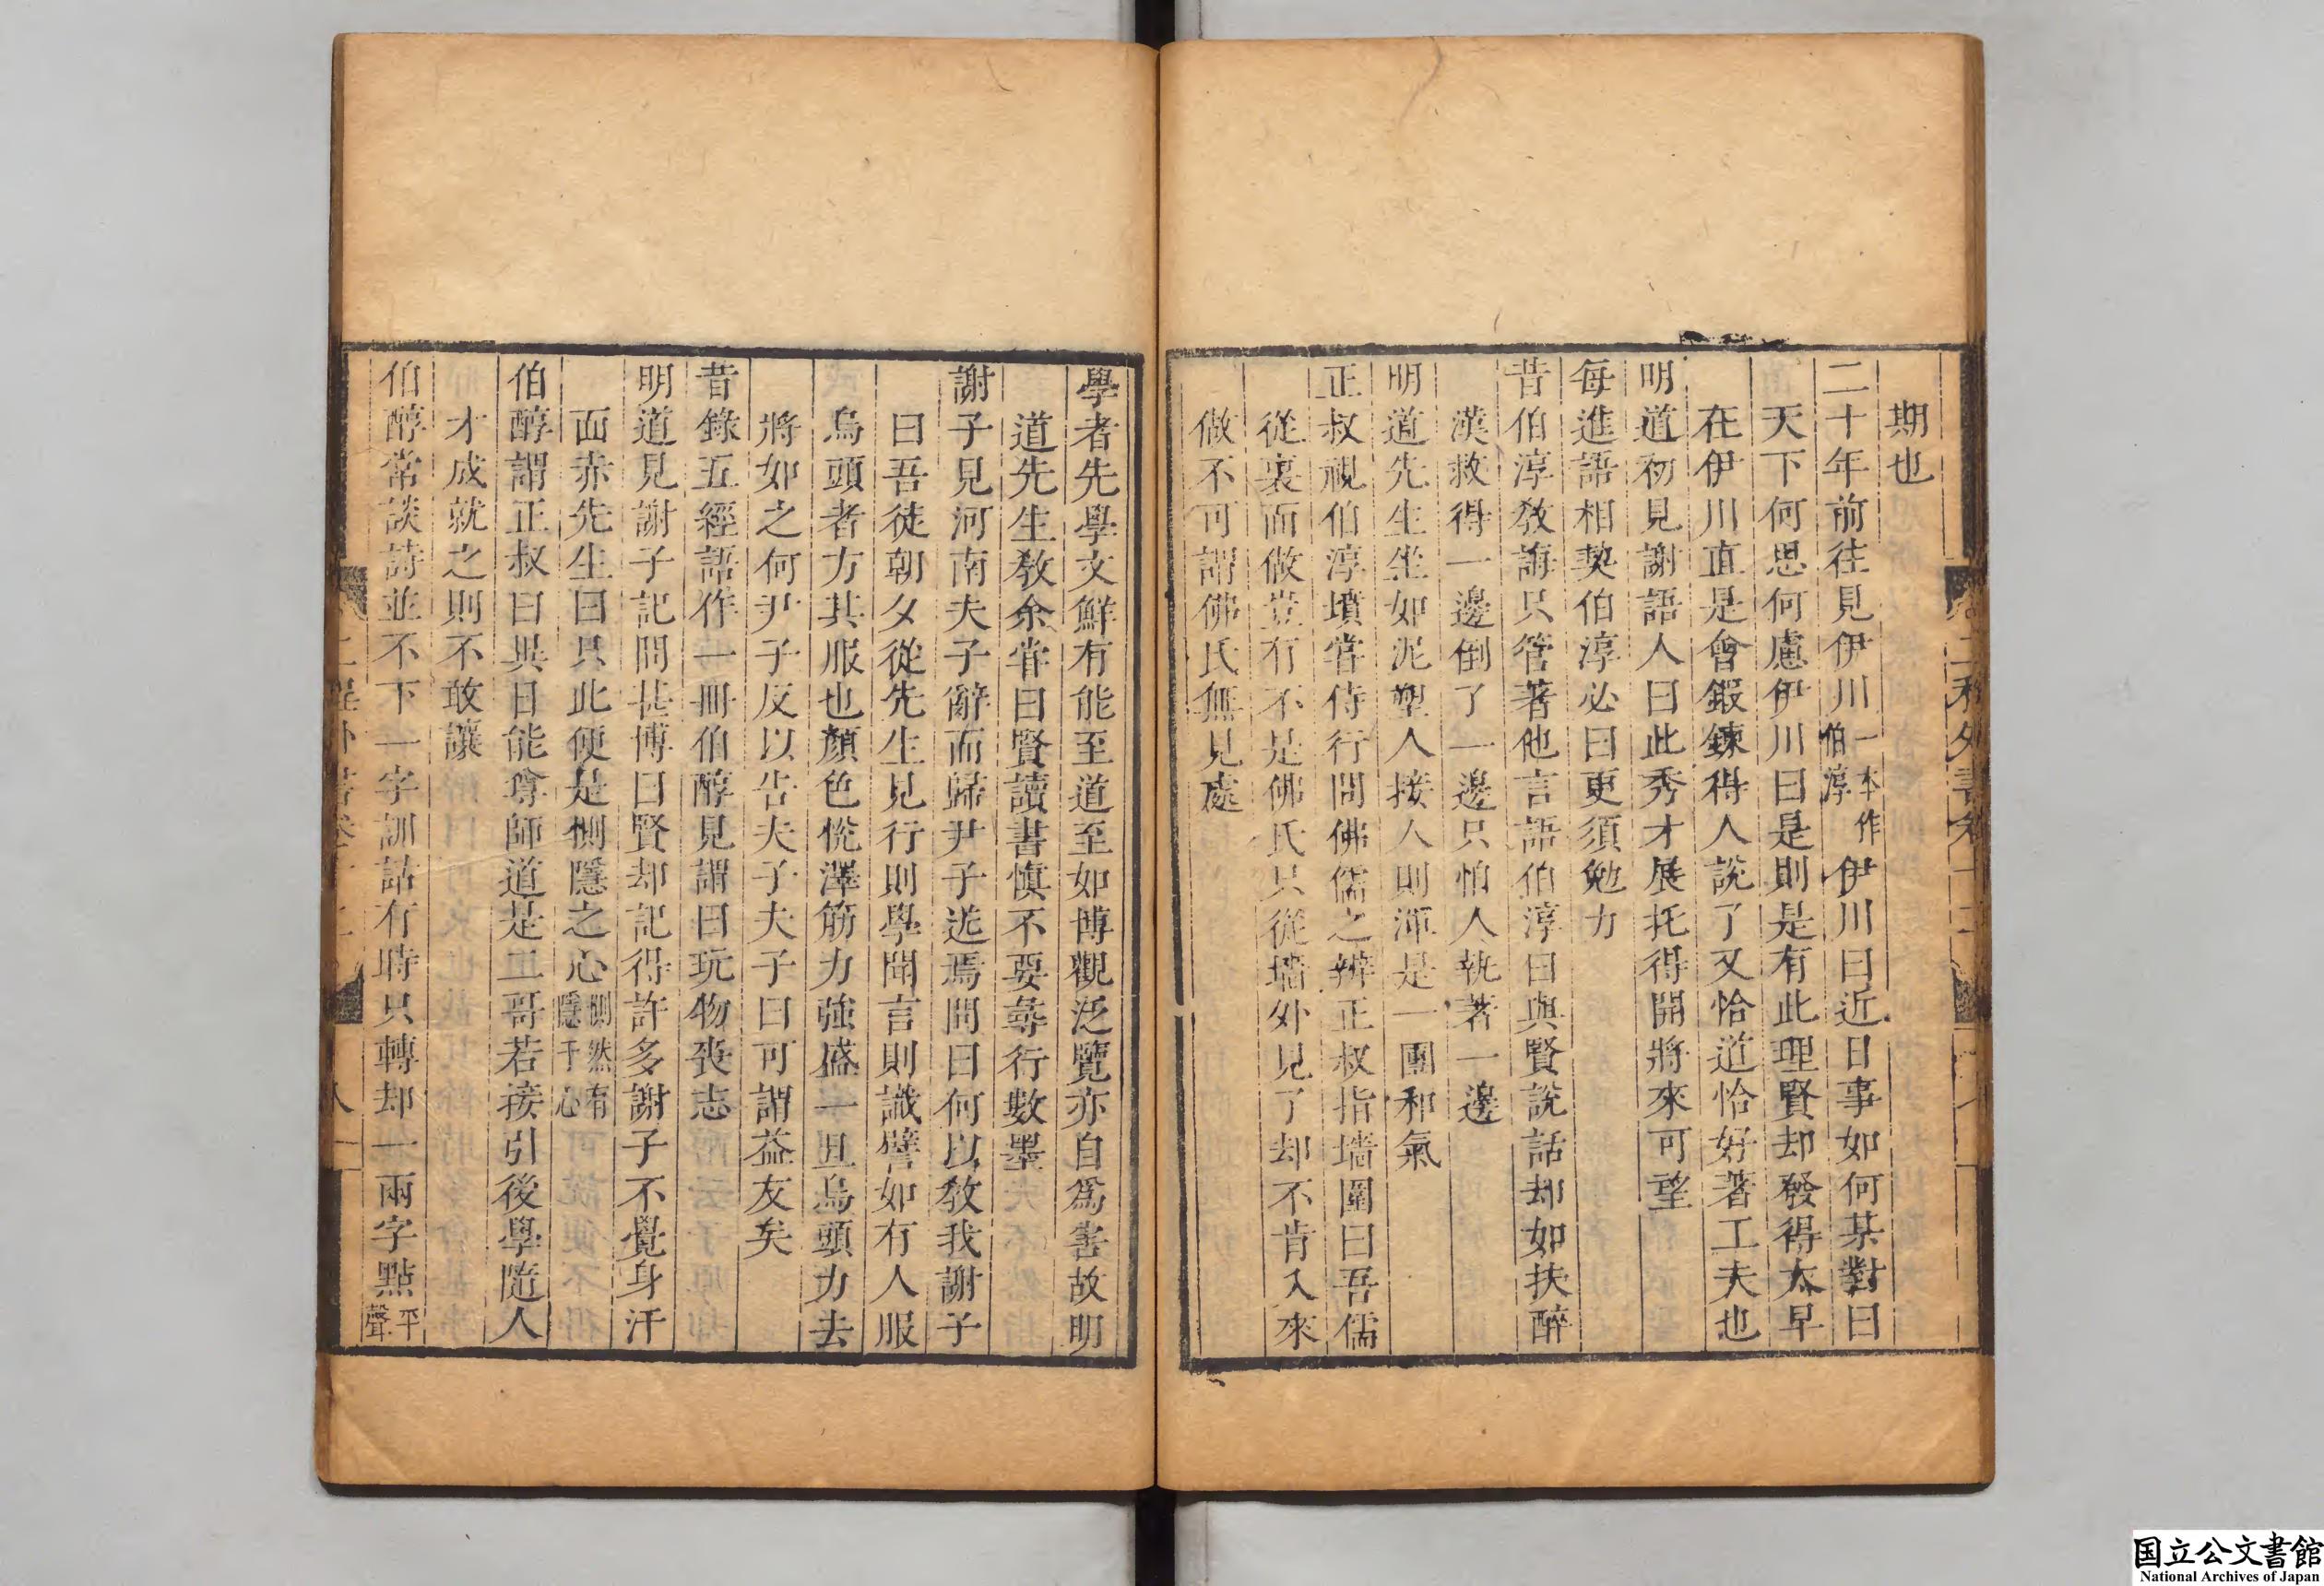 期也
二十年前往見伊川一本作伯淳伊川曰近日事如何某對曰
天下何思何慮伊川曰是則是有此理賢却發得太早
在伊川直是會鍛鍊得人說了又恰道恰好著工夫也
明道初見謝語人曰此秀才展托得開將來可望
每進語相契伯淳必曰更須勉力
昔伯淳敎誨只管著他言語伯淳曰與賢說話却如扶醉
漢救得一邊倒了一邊只怕人執著一邊
明道先生坐如泥塑人接人則渾是一團和氣
正叔視伯淳墳嘗侍行問佛儒之辨正叔指墻圍曰吾儒
從裏而做豈有不是佛氏只從墻外見了却不肯入來
做不可謂佛氏無見處
學者先學文鮮有能至道至如博觀泛覽亦自爲害故明
道先生敎余嘗曰賢讀書愼不要尋行數墨
謝子見河南夫子辭而歸尹子送焉問曰何以敎我謝子
曰吾徒朝夕從先生見行則學聞言則識譬如有人服
烏頭者方其服也顏色悅澤筋力強盛一旦烏頭力去
將如之何尹子反以告夫子夫子曰可謂益友矣
昔錄五經語作一冊伯醇見謂曰玩物喪志
明道見謝子記問甚博曰賢却記得許多謝子不覺身汗
面赤先生曰只此便是惻隱之心惻然有隱于心
伯醇謂正叔曰異日能尊師道是二哥若接引後學隨人
才成就之則不敢讓
伯醇常談詩並不下一字訓詁有時只轉却一兩字點平聲